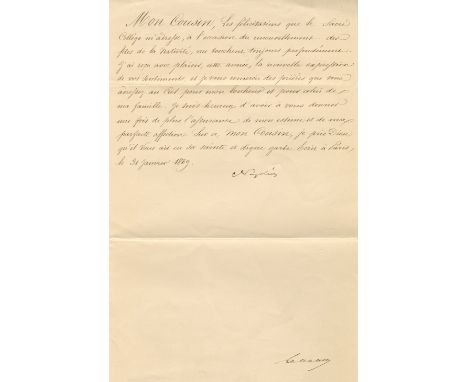 Mon Cousin, les félicitations que le Sacré
Collège m'adresse, à l'occasion du renouvellement des
fêtes de la Nativité, me touchent toujours profondément.
J'ai reçu avec plaisir, cette année, la nouvelle expression
de vos sentiments et je vous remercie des prières que vous
adressez au Ciel pour mon bonheur et pour celui de
ma famille. Je suis heureux d'avoir à vous donner
une fois de plus l'assurance de mon estime et de ma
parfaite affection. Sur ce, mon Cousin, je prie Dieu
qu'il vous ait en sa sainte et digne garde. Écrit à Paris,
le 31 janvier 1869.
Napoléon